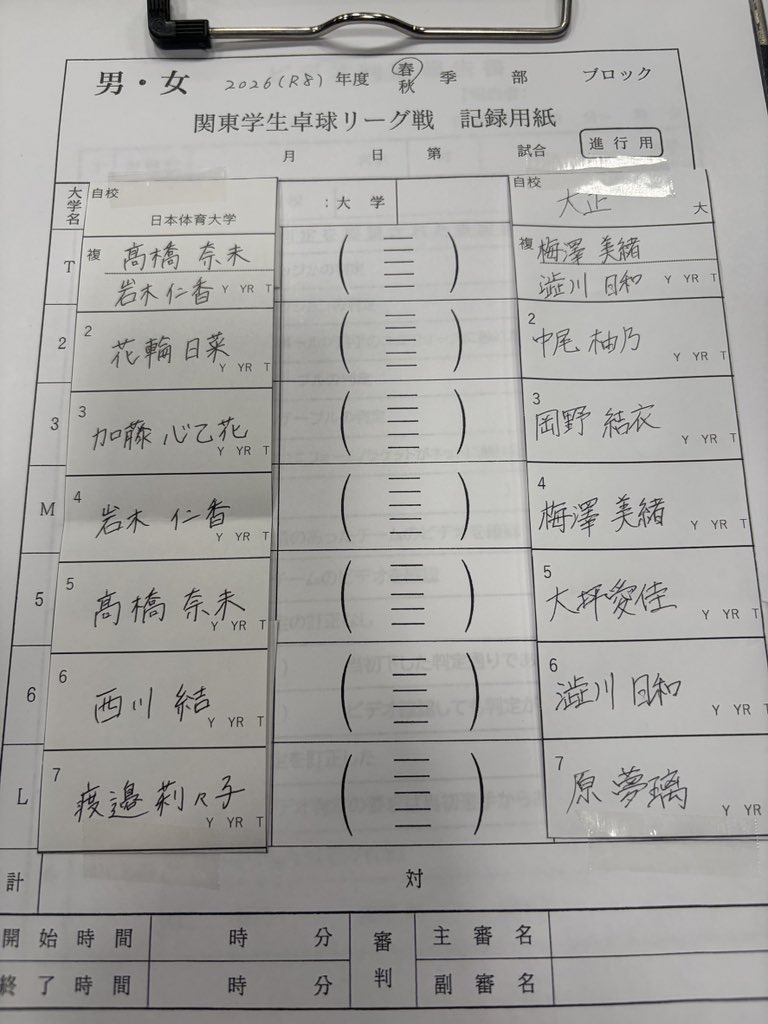 男・女 2026(R8)年度 春秋 季 部 ブロック
関東学生卓球リーグ戦 記録用紙
進行用
月 日 第 試合
大学名 自校 日本体育大学 : 大学 自校 大正 大
T 複 髙橋 奈未 ( ) 複 梅澤 美緒
岩木 仁香 Y YR T 澁川 日和 Y YR T
2 2 花輪 日菜 Y YR T ( ) 2 中尾 柚乃 Y YR T
3 3 加藤 心乙花 Y YR T ( ) 3 岡野 結衣 Y YR T
M 4 岩木 仁香 Y YR T ( ) 4 梅澤 美緒 Y YR T
5 5 髙橋 奈未 Y YR T ( ) 5 大坪 愛佳 Y YR T
6 6 西川 結 Y YR T ( ) 6 澁川 日和 Y YR T
L 7 渡邉 莉々子 Y YR T ( ) 7 原 夢璃 Y YR
計 対
開始時間 時 分 審判 主審名
終了時間 時 分 副審名